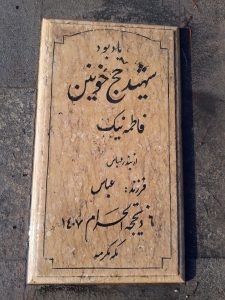 یادبود
شهید حج خونین
فاطمه نیک
از بندرعباس
فرزند: عباس
۶ ذیحجه الحرام ۱۴۰۷
مکه مکرمه